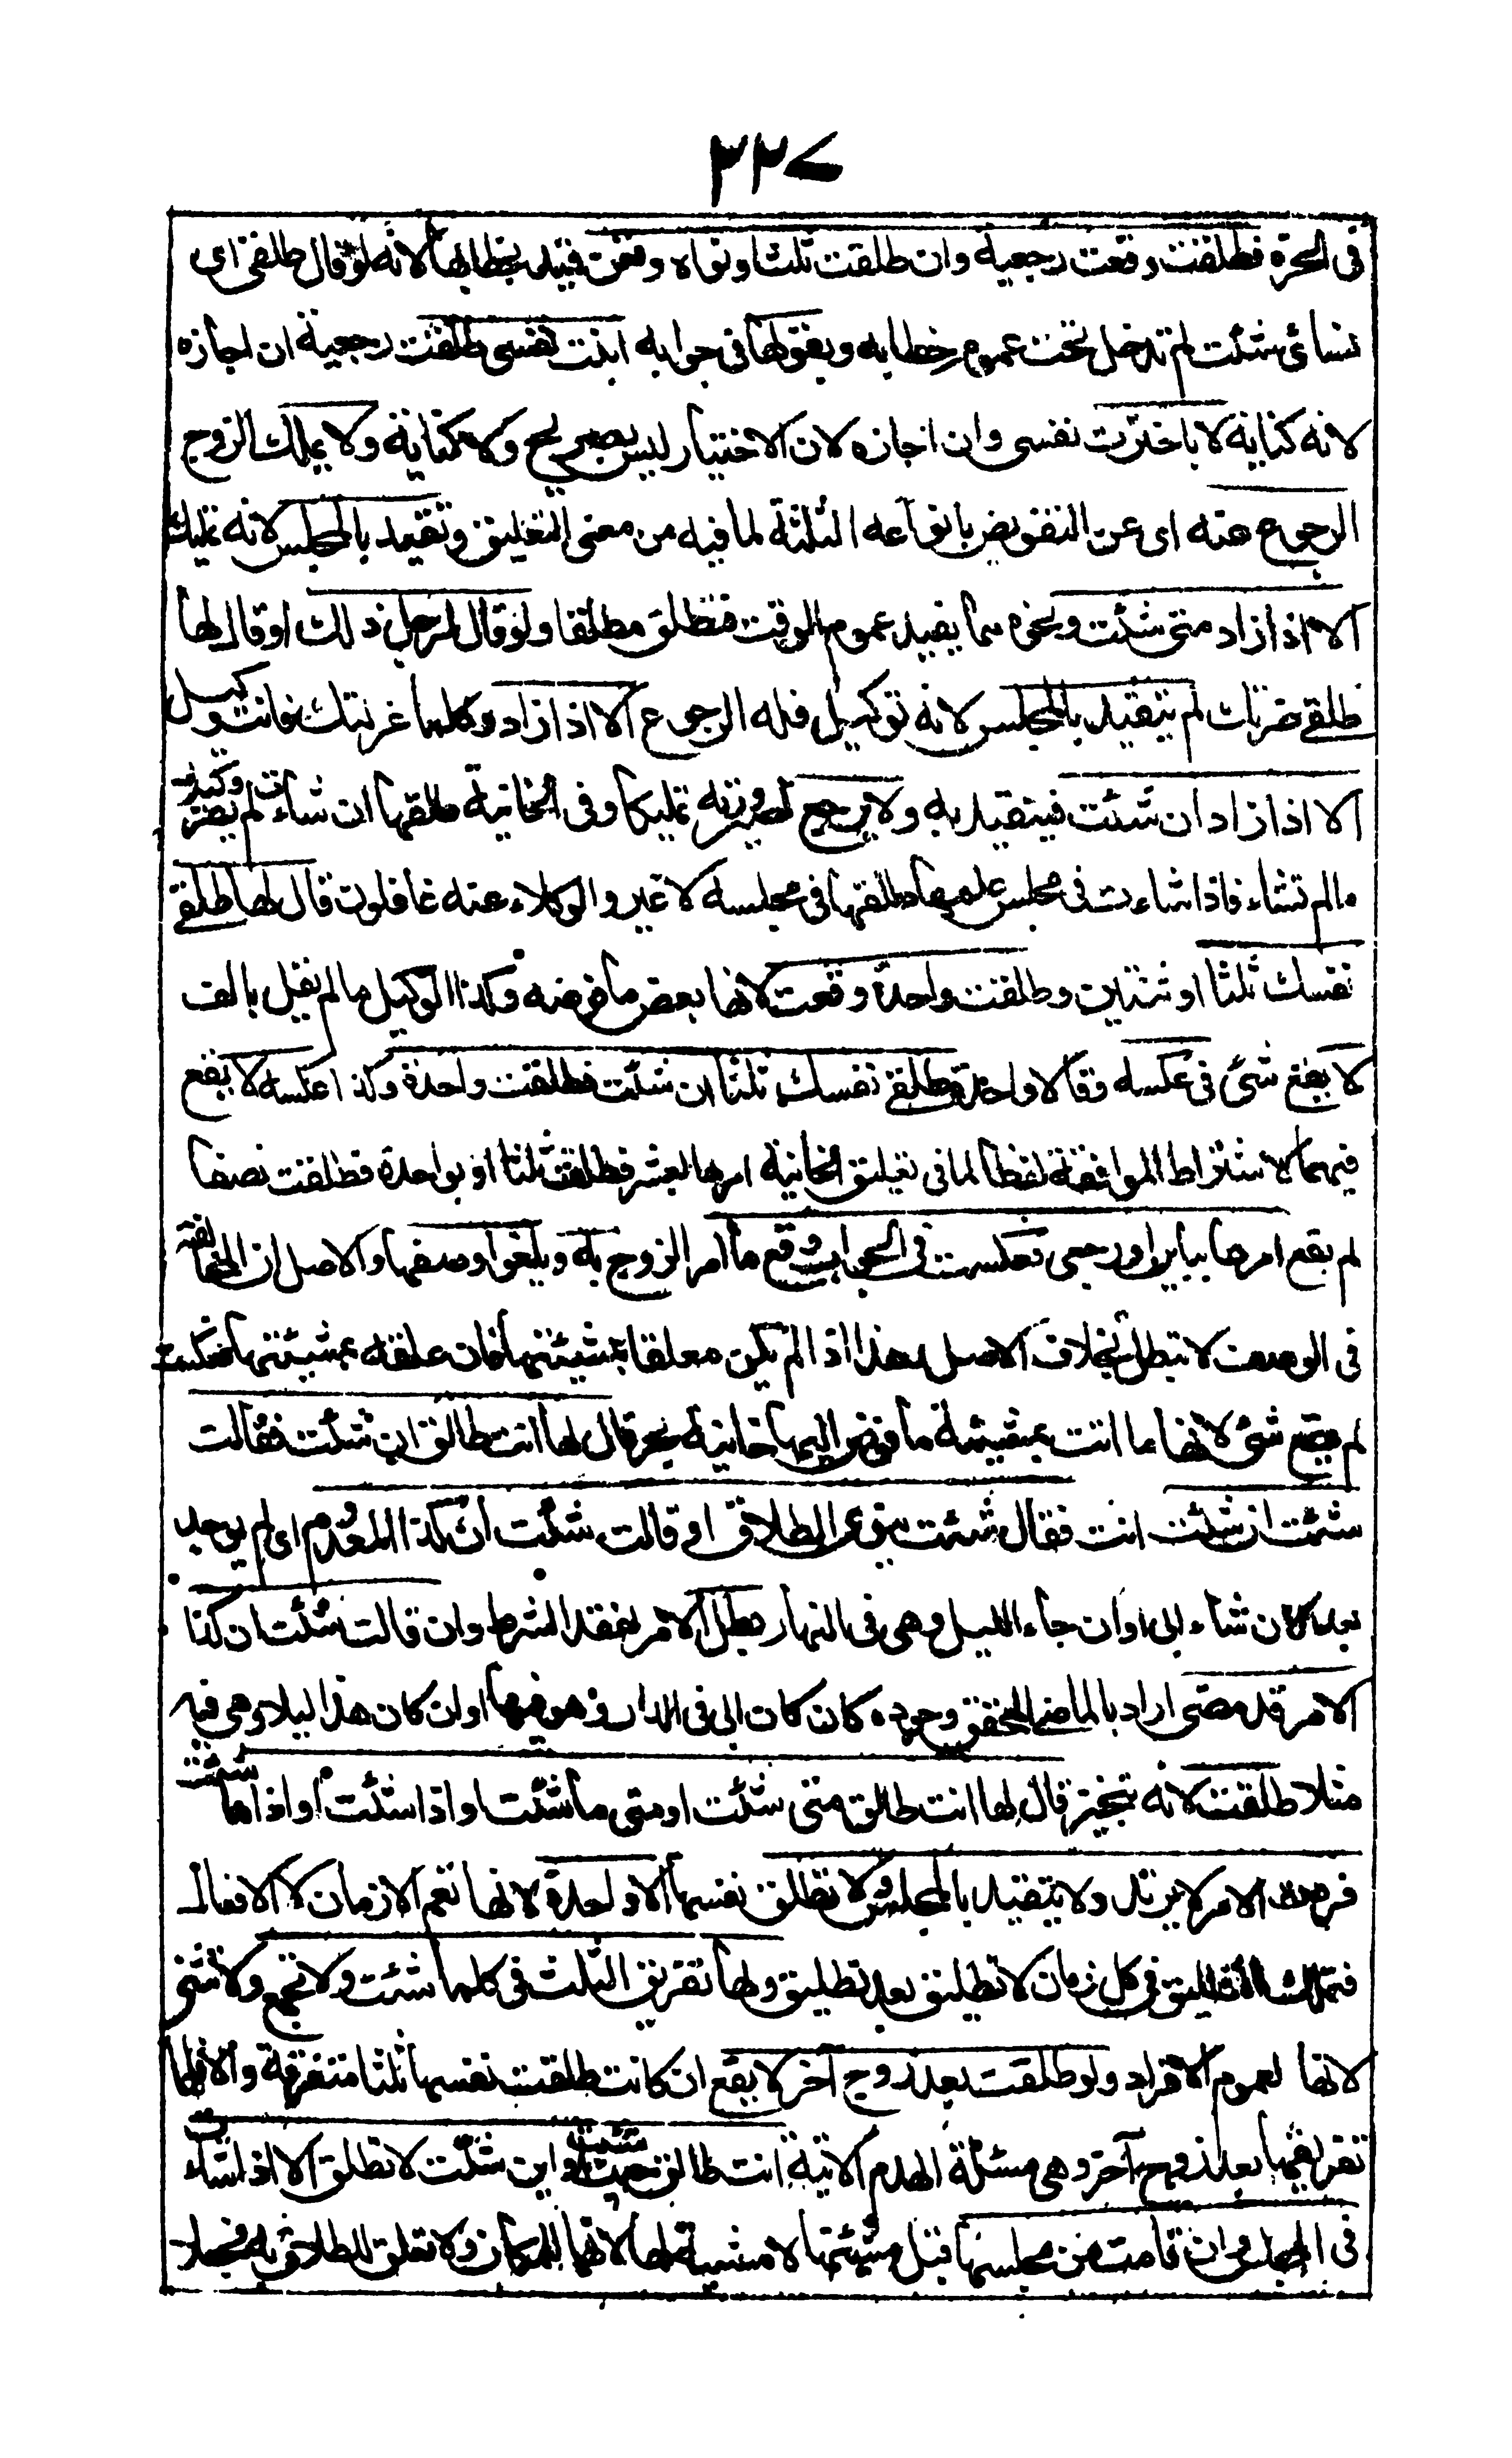 ٣٢٧
فى الحرة فطلقت وقعت رجعية وان طلقت ثلثا ونواه وقعن قيد بخطابها لانه لو قال طلقى اى
نسائى شئت لم تدخل تحت عموم خطابه وبقولها فى جوابه ابنت نفسى طلقت رجعية ان اجازه
لانه كناية لا باخترت نفسى وان اجازه لان الاختيار ليس بصريح ولا كناية ولا يملك الزوج
الرجوع عنه اى عن التفويض بانواعه الثلثة لما فيه من معنى التعليق وتقيد بالمجلس لانه تمليك
الا اذا زاد متى شئت ونحوه مما يفيد عموم الوقت فتطلق مطلقا ولو قال لرجل ذلك او قال لها
طلقى ضرتك لم يتقيد بالمجلس لانه توكيل فله الرجوع الا اذا زاد وكلما عزلتك فانت وكيل
الا اذا زاد ان شئت فيتقيد به ولا يرجع لصيرورته تمليكا وفى الخانية طلقها ان شاءت لم يصر وكيلا
مالم تشاء فاذا شاءت فى مجلس علمها طلقها فى مجلسه لا غير والوكلاء عنه غافلون قال لها طلقى
نفسك ثلثا او ثنتين وطلقت واحدة وقعت لانها بعض ما فوضه وكذا الوكيل مالم يقل بالف
لا يقع شئ فى عكسه وقالا واحدة طلقى نفسك ثلثا ان شئت فطلقت واحدة وكذا عكسه لا يقع
فيهما لاشتراط الموافقة لفظا لما فى تعليق الخانية امرها بعشر فطلقت ثلثا او بواحدة فطلقت نصفا
لم يقع امرها ببائن او رجعى فعكست فى الجواب وقع ما امر الزوج به ويلغو وصفها والاصل ان المخالفة
فى الوصف لا تبطل بخلاف الاصل وهذا اذا لم يكن معلقا بمشيئتها فان علقه بمشيئتها فعكست
لم يقع شئ لانها ما اتت بمشيئة ما فوض اليها خانية بحر قال لها انت طالق ان شئت فقالت
شئت ان شئت انت فقال شئت ينوى الطلاق او قالت شئت ان كذا المعدوم اى لم يوجد
بعد كان شاء ابى او ان جاء الليل وهى فى النهار بطل الامر لفقد الشرط وان قالت شئت ان كذا
الامر قد مضى اراد بالماضى المحقق وجوده كان كان ابى فى الدار وهو فيها او ان كان هذا ليلا وهى فيه
مثلا طلقت لانه تنجيز قال لها انت طالق متى شئت او متى ما شئت او اذا شئت او اذا ما شئت
فردت الامر لا يرتد ولا يتقيد بالمجلس ولا تطلق نفسها الا واحدة لانها تعم الازمان لا الافعال
فتملك التطليق فى كل زمان لا تطليق بعد تطليق ولها تفريق الثلث فى كلما شئت ولا تجمع ولا تثنى
لانها لعموم الافراد ولو طلقت بعد زوج آخر لا يقع ان كانت طلقت نفسها ثلثا متفرقة والا فلها
تفريقها بعد زوج آخر وهى مسئلة الهدم الآتية انت طالق حيث شئت او اين شئت لا تطلق الا اذا شاءت
فى المجلس وان قامت من مجلسها قبل مشيئتها لا مشيئة لها لانهما للمكان ولا تعلق للطلاق به فجعلا